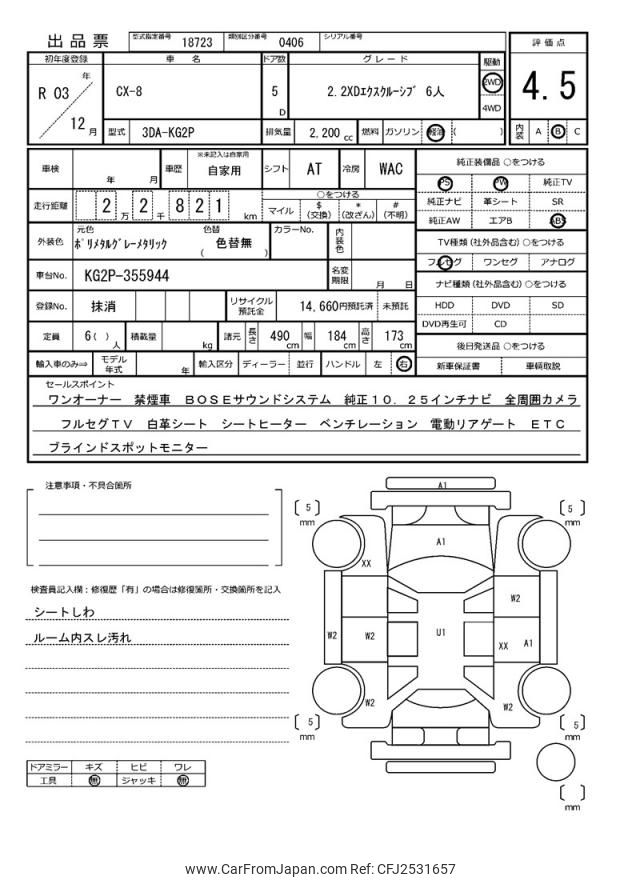 出品票
型式指定番号 18723 類別区分番号 0406 シリアル番号
初年度登録 車名 ドア数 グレード 駆動 評価点
R 03 年 12 月
CX-8 5 D 2.2XDエクスクルーシブ 6人 2WD 4WD
4.5
型式 3DA-KG2P 排気量 2,200 cc 燃料 ガソリン 軽油 ( )
内装 A B C
車検 年 月 車歴 ※未記入は自家用 自家用 シフト AT 冷房 WAC
純正装備品 ○をつける
PS PW 純正TV
純正ナビ 革シート SR
純正AW エアB ABS
走行距離 2 万 2 千 8 2 1 km
○をつける
マイル $ (交換) * (改ざん) # (不明)
TV種類 (社外品含む) ○をつける
フルセグ ワンセグ アナログ
外装色 元色 ポリメタルグレーメタリック 色替 ( 色替無 ) カラーNo. 内装色
ナビ種類 (社外品含む) ○をつける
HDD DVD SD
DVD再生可 CD
車台No. KG2P-355944 名変期限 月 日
登録No. 抹消 リサイクル預託金 14,660円預託済 未預託
定員 6( ) 人 積載量 kg 諸元 長さ 490 cm 幅 184 cm 高さ 173 cm
後日発送品 ○をつける
新車保証書 車輌取説
輸入車のみ⇒ モデル年式 年 輸入区分 ディーラー 並行 ハンドル 左 右
セールスポイント
ワンオーナー 禁煙車 BOSEサウンドシステム 純正10.25インチナビ 全周囲カメラ
フルセグTV 白革シート シートヒーター ベンチレーション 電動リアゲート ETC
ブラインドスポットモニター
注意事項・不具合箇所
検査員記入欄：修復歴「有」の場合は修復箇所・交換箇所を記入
シートしわ
ルーム内スレ汚れ
ドアミラー キズ ヒビ ワレ
工具 無 ジャッキ 無
A1
5 mm
5 mm
A1
XX
W2
W2 W2 U1 XX A1
W2 W2
5 mm
5 mm
mm
www.CarFromJapan.com Ref: CFJ2531657